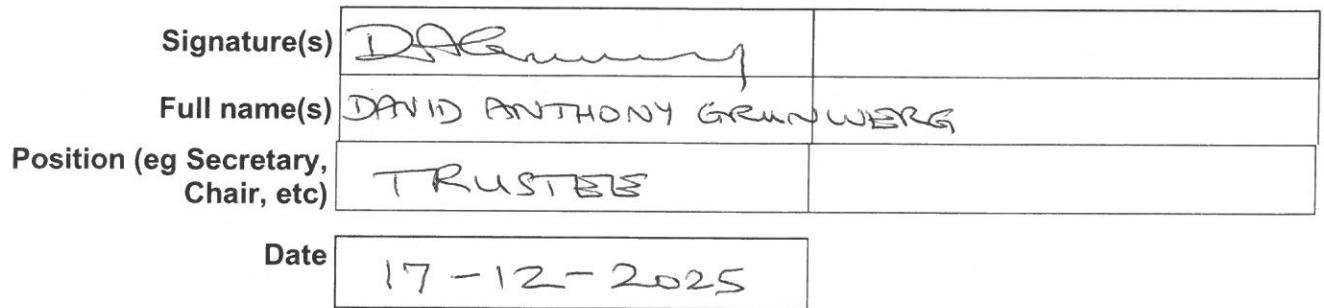 Signature(s) DAGrunwerg
Full name(s) DAVID ANTHONY GRUNWERG
Position (eg Secretary,
Chair, etc) TRUSTEE
Date 17-12-2025